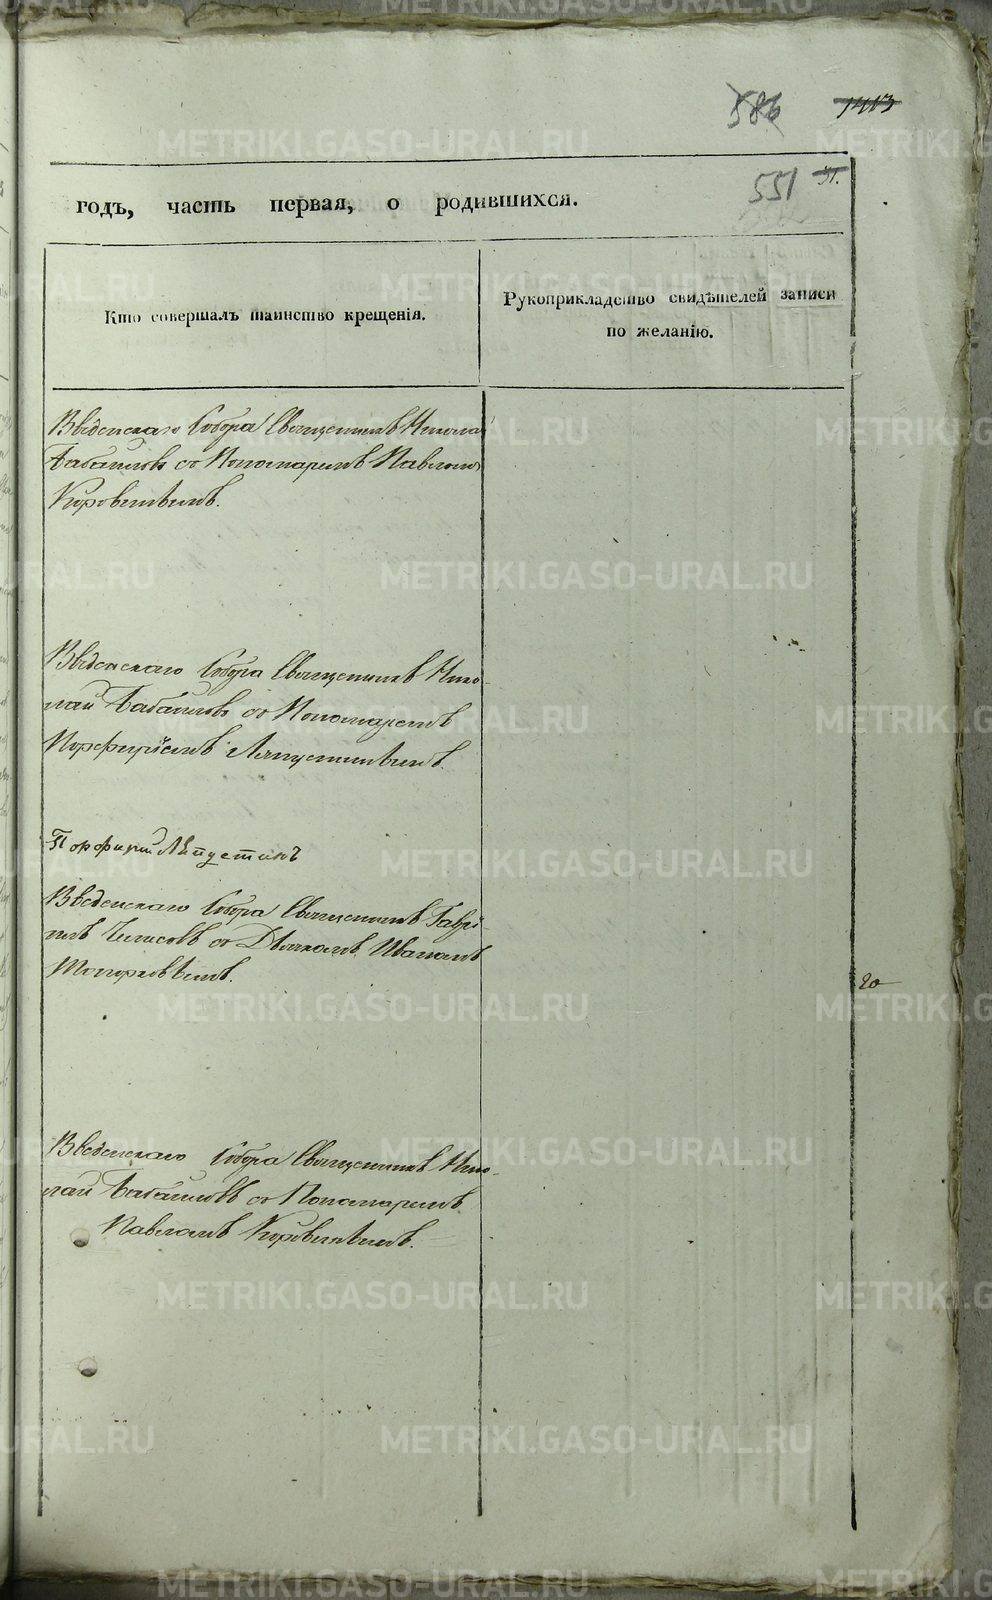 586 1413
551 51.
годъ, часть первая, о родившихся.
Кто совершалъ таинство крещенія.
Рукоприкладство свидѣтелей записи
по желанію.
Введенскаго Собора Священникъ Никола
Бабиновъ со Пономаремъ Павломъ
Коровинымъ.
Введенскаго Собора Священникъ Нико-
лай Бабиновъ со Пономаремъ
Порфиріемъ Ляпустинымъ.
Порфирий Ляпустинъ
Введенскаго Собора Священникъ Гаврі-
илъ со Дьячкомъ Иваномъ
Топорковымъ.
20
Введенскаго Собора Священникъ Нико-
лай Бабиновъ со Пономаремъ
Павломъ Коровинымъ.
METRIKI.GASO-URAL.RU